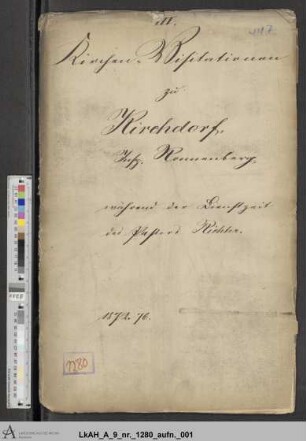 Kirchen-Visitationen
zu
Kirchdorf,
Insp. Ronnenberg,
während der Dienstzeit
des Pastors Richter.
1872. 76.
1280
LkAH_A_9_nr._1280_aufn._001